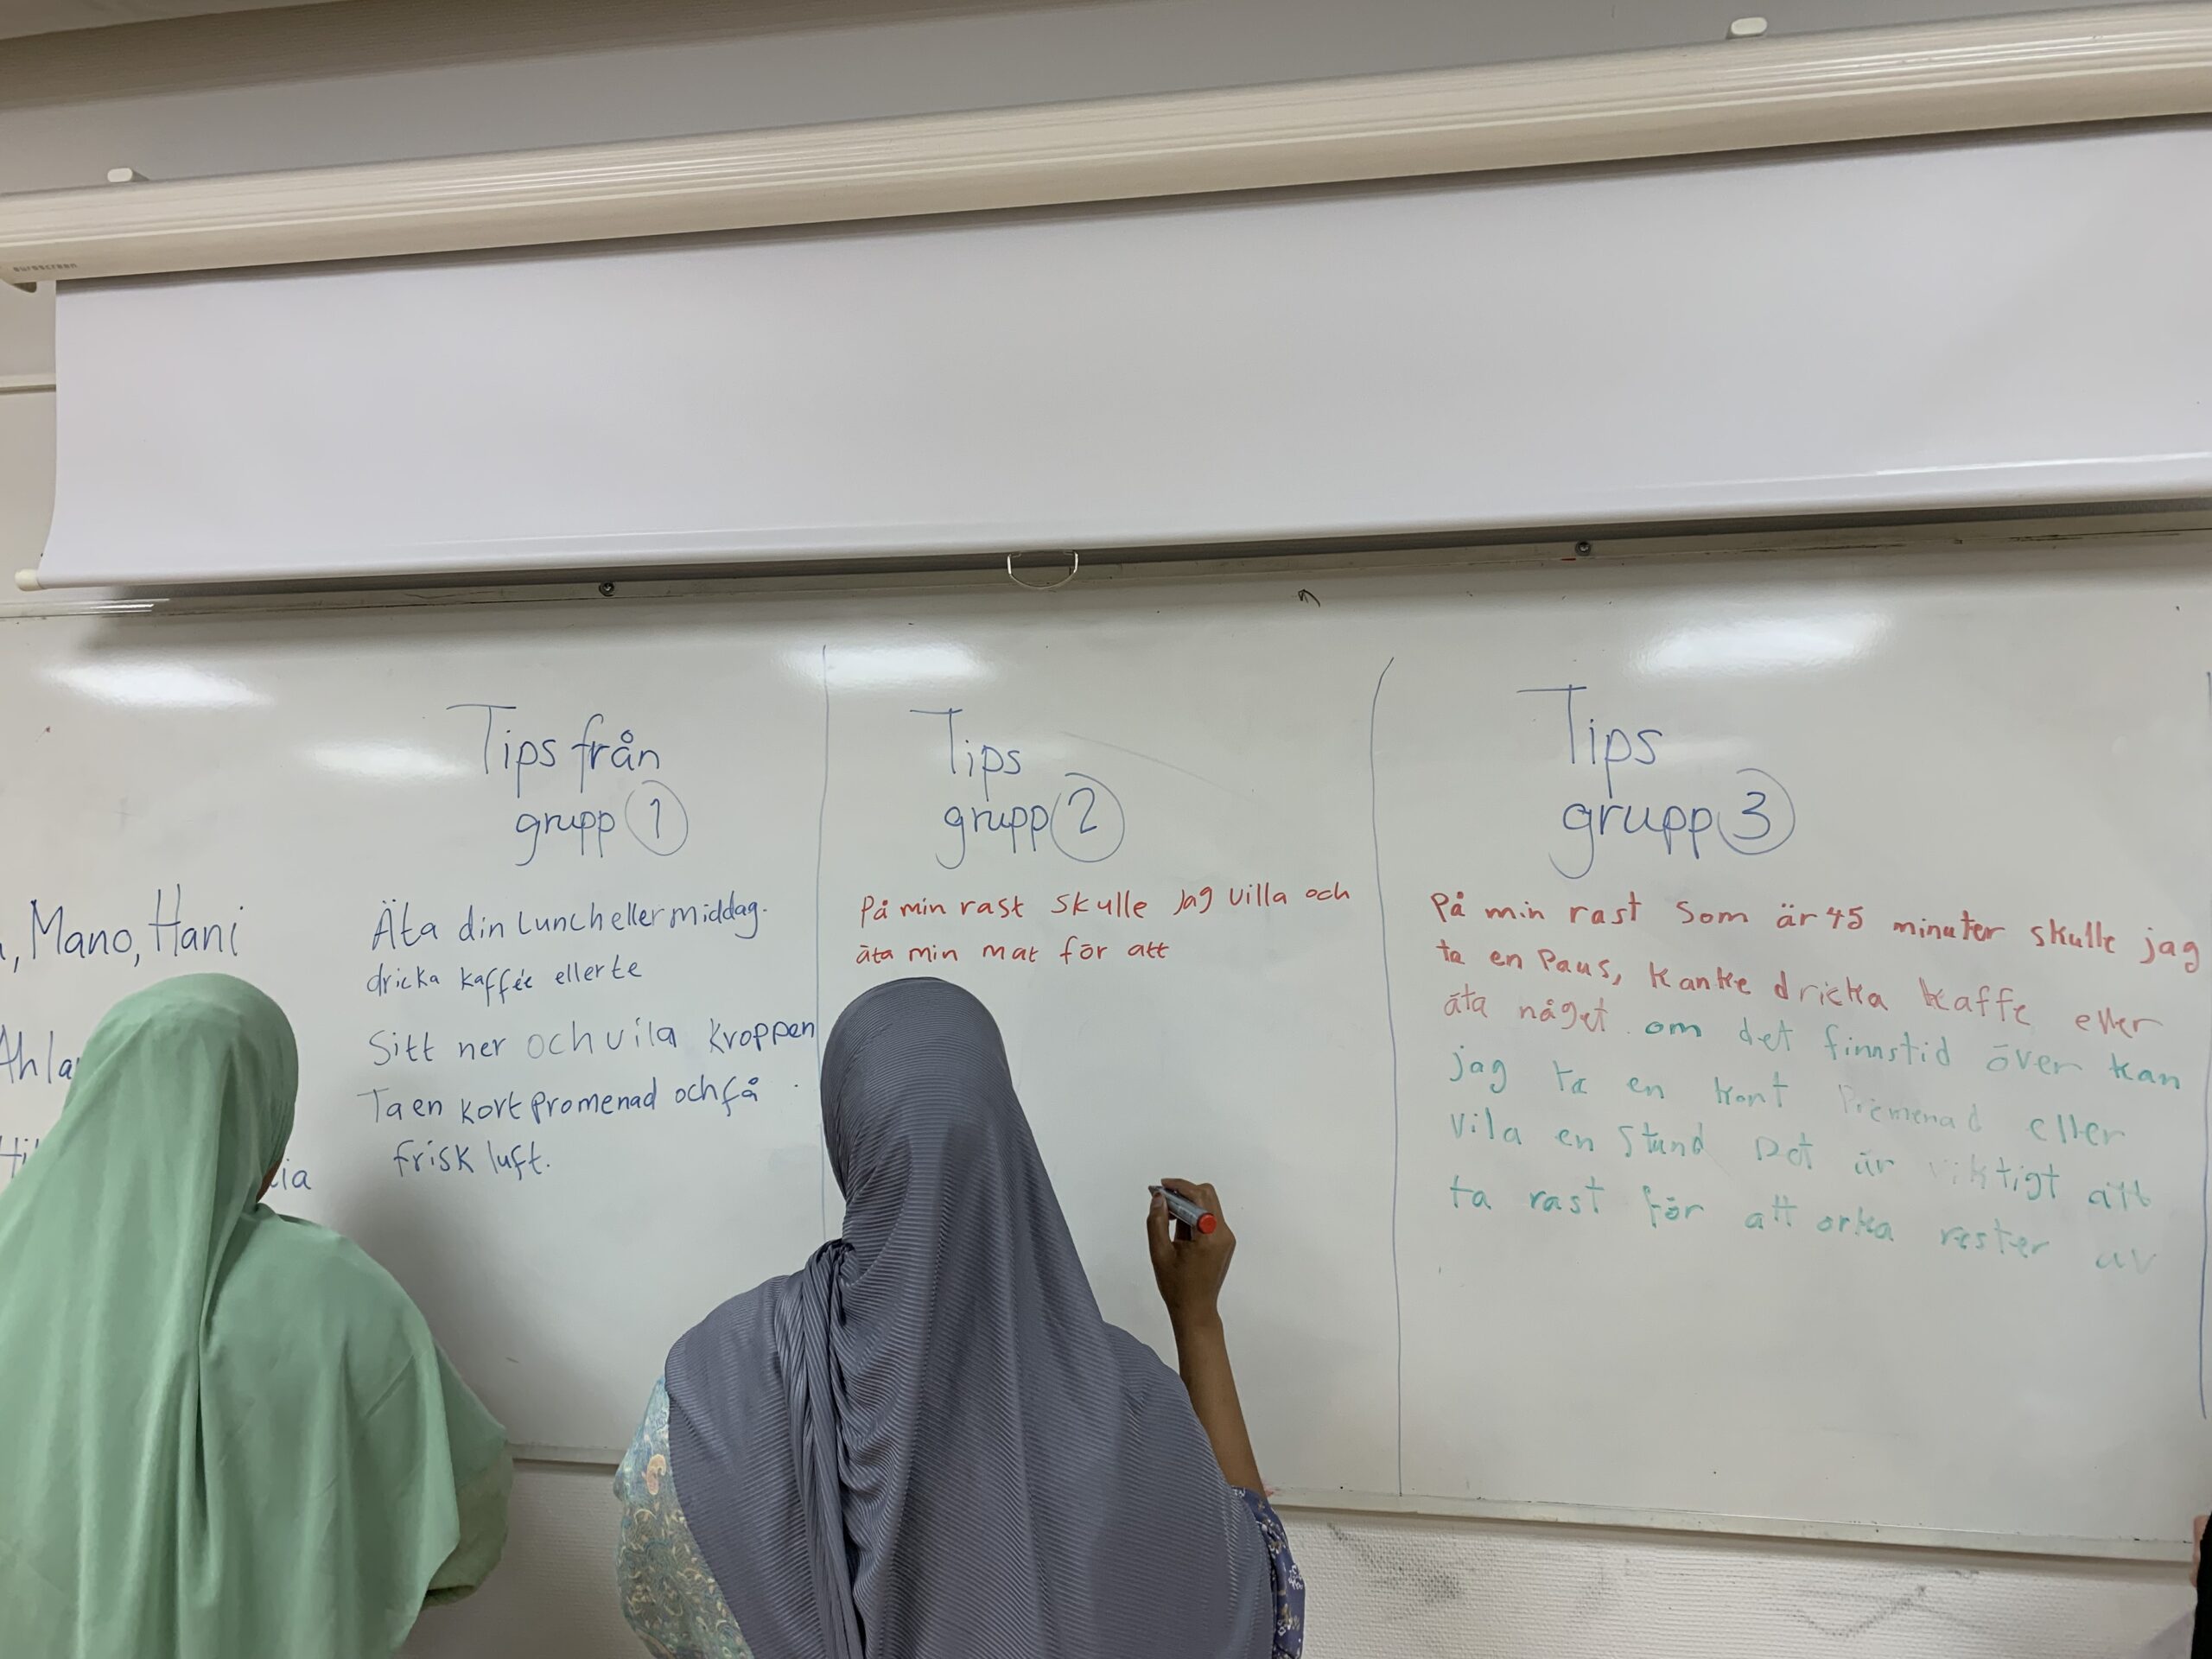 euroscreen
, Mano, Hani
Ahla
ia
Tips från
grupp 1
Äta din lunch eller middag.
dricka kaffée eller te
Sitt ner och vila kroppen
Ta en kort promenad och få
frisk luft.
Tips
grupp 2
På min rast skulle jag villa och
äta min mat för att
Tips
grupp 3
På min rast som är 45 minuter skulle jag
ta en Paus, kanke dricka kaffe eller
äta något om det finns tid över kan
jag ta en kort Premenad eller
vila en stund Det är viktigt att
ta rast för att orka rester av